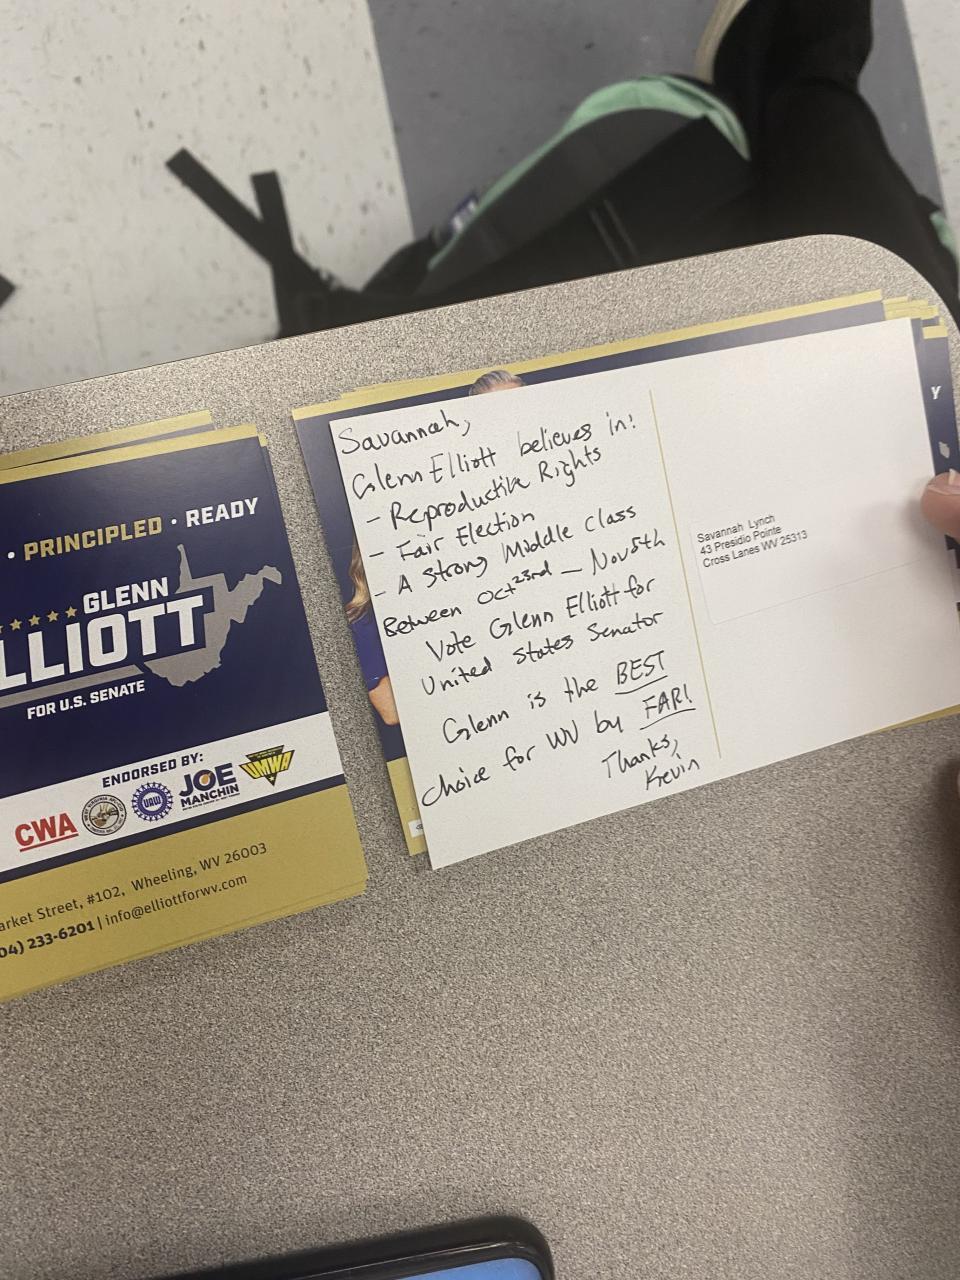 • PRINCIPLED • READY
GLENN
ELLIOTT
FOR U.S. SENATE
ENDORSED BY:
CWA
UAW
JOE
MANCHIN
UMWA
Market Street, #102, Wheeling, WV 26003
04) 233-6201 | info@elliottforwv.com
Savannah,
Glenn Elliott believes in!
- Reproductive Rights
- Fair Election
- A Strong Middle Class
Between Oct 23rd - Nov 5th
Vote Glenn Elliott for
United States Senator
Glenn is the BEST
choice for WV by FAR!
Thanks,
Kevin
Savannah Lynch
43 Presidio Pointe
Cross Lanes WV 25313
Y